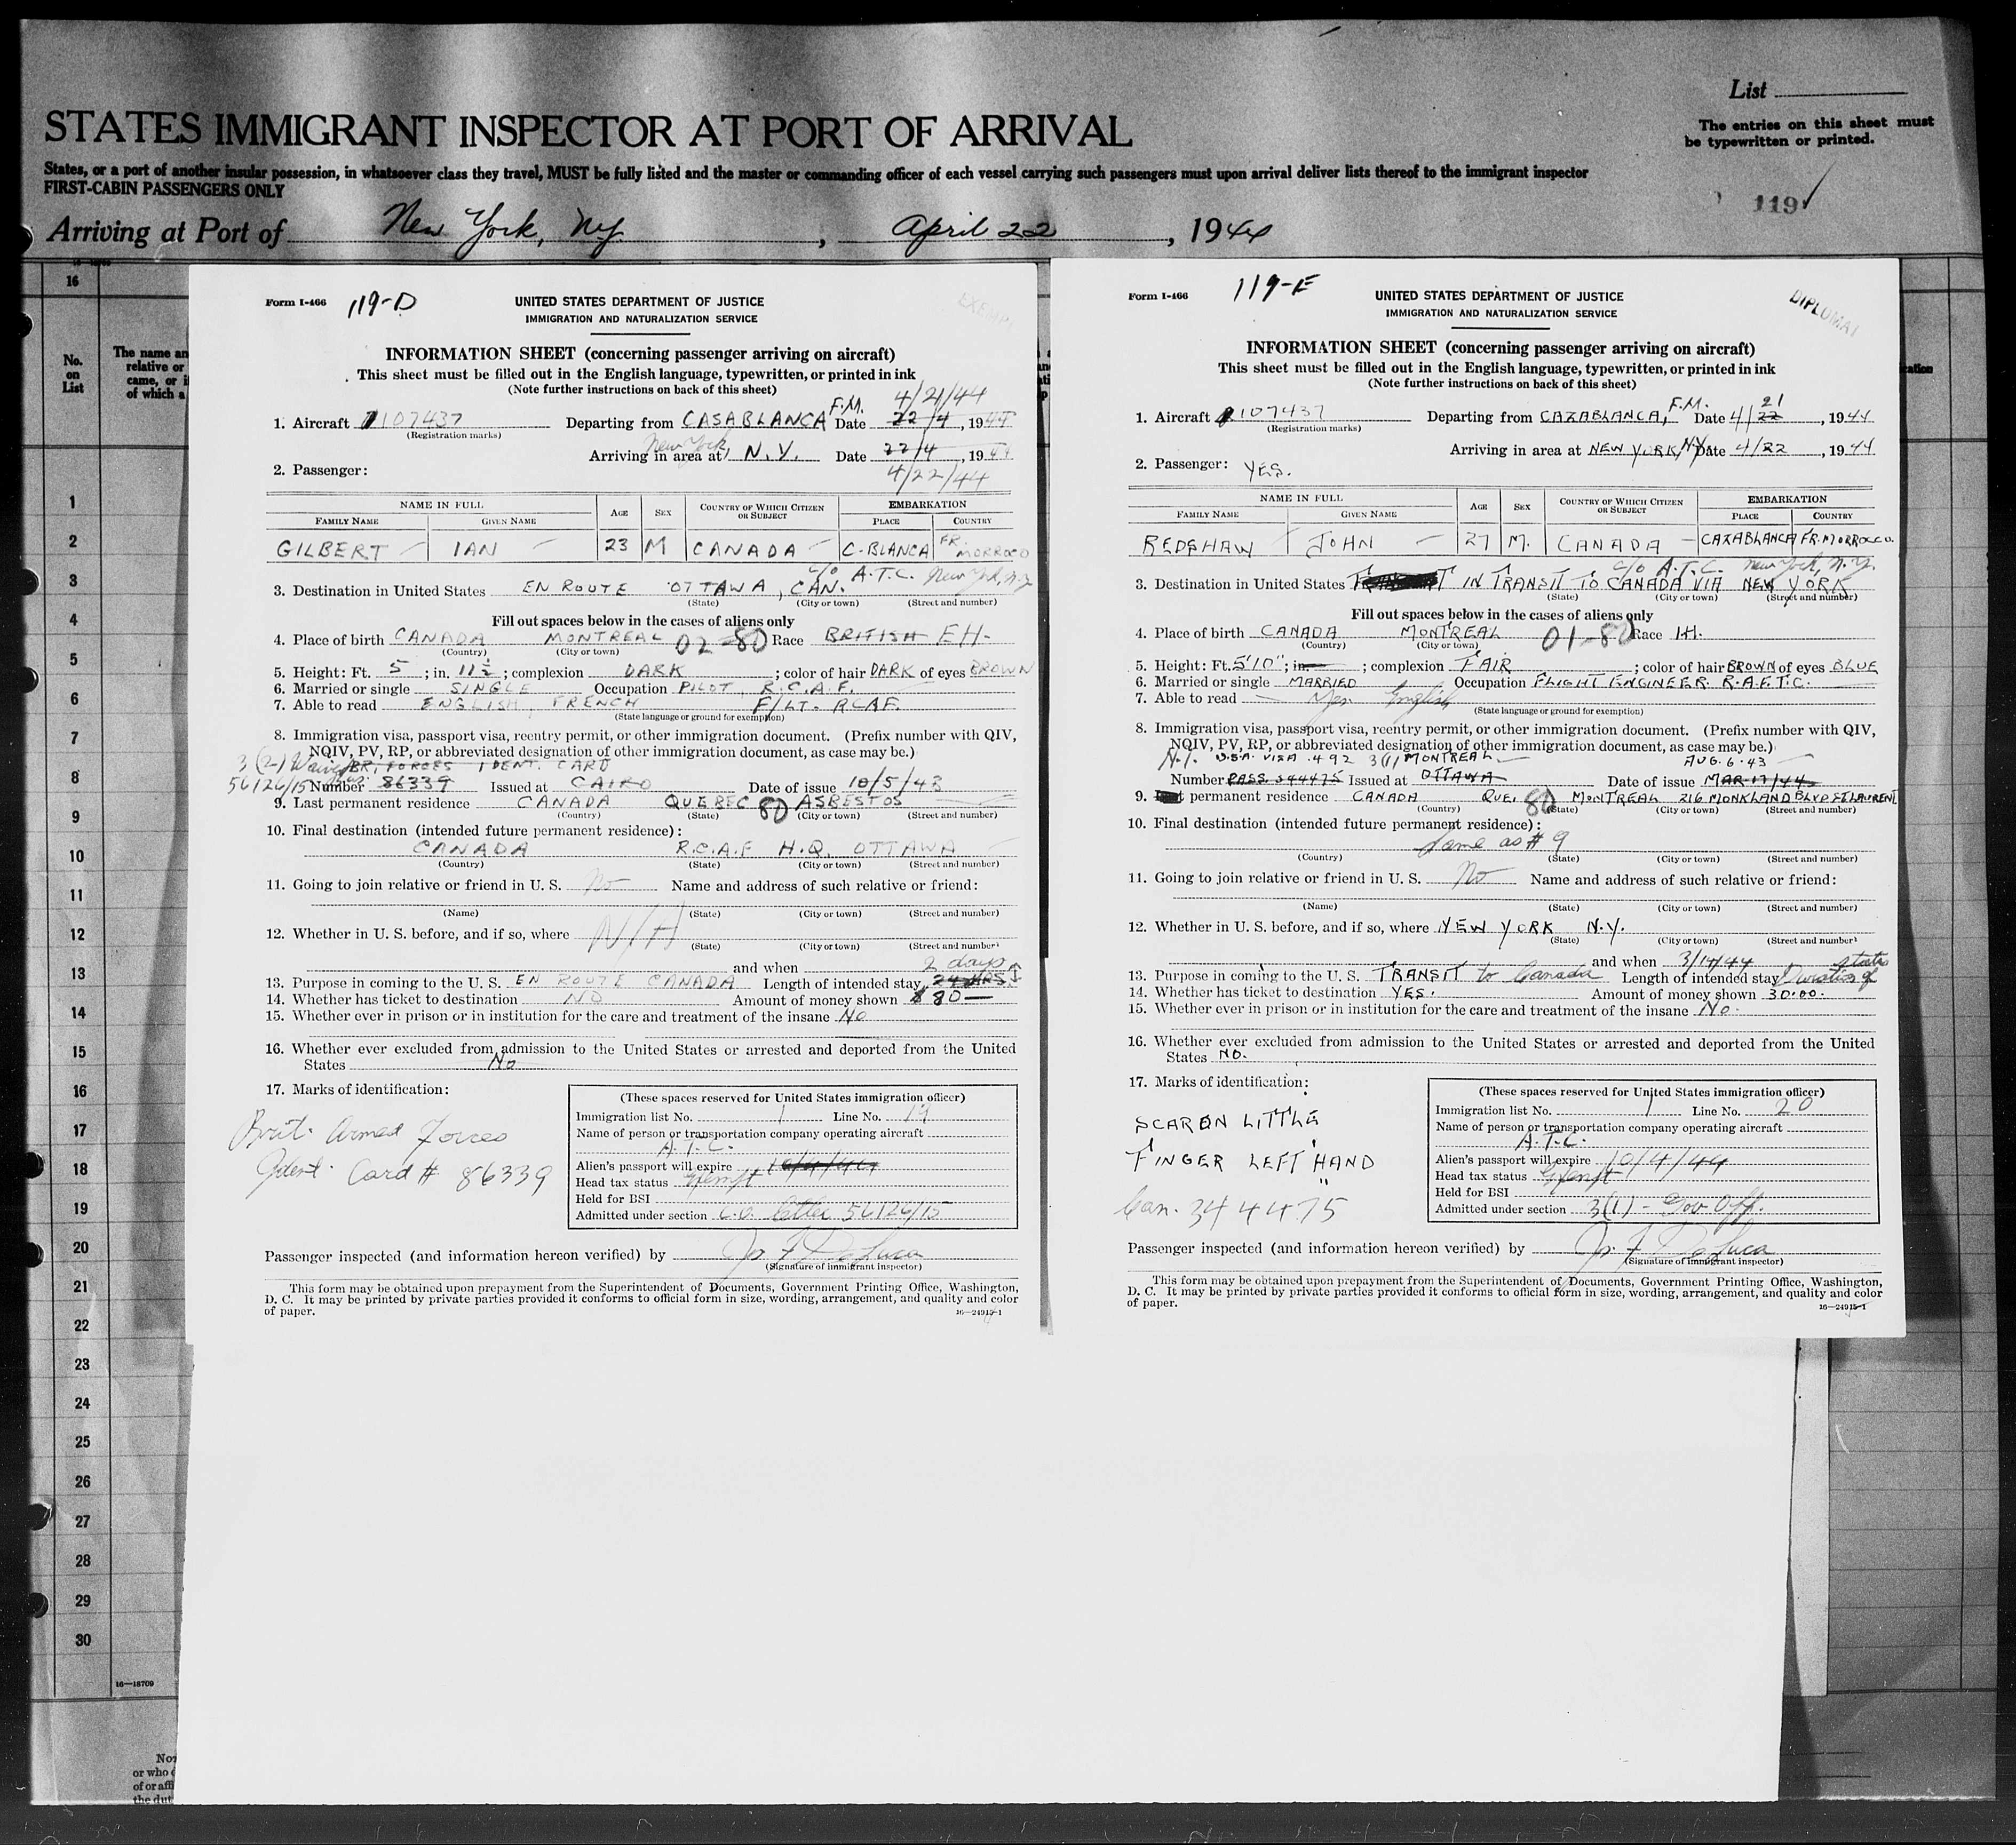 List
STATES IMMIGRANT INSPECTOR AT PORT OF ARRIVAL
The entries on this sheet must
be typewritten or printed.
States, or a port of another insular possession, in whatsoever class they travel, MUST be fully listed and the master or commanding officer of each vessel carrying such passengers must upon arrival deliver lists thereof to the immigrant inspector
FIRST-CABIN PASSENGERS ONLY
119
Arriving at Port of New York, NY , April 22 , 1944
16
No.
on
List
The name an
relative or
came, or i
of which a
1
2
3
4
5
6
7
8
9
10
11
12
13
14
15
16
17
18
19
20
21
22
23
24
25
26
27
28
29
30
16—18709
or who
of or affi
the dut
Form I-466 119-D
UNITED STATES DEPARTMENT OF JUSTICE
IMMIGRATION AND NATURALIZATION SERVICE
INFORMATION SHEET (concerning passenger arriving on aircraft)
This sheet must be filled out in the English language, typewritten, or printed in ink
(Note further instructions on back of this sheet)
4/21/44
1. Aircraft 107437 Departing from CASABLANCA F.M. Date 22/4, 1944
(Registration marks)
New York
Arriving in area at N.Y. Date 22/4, 1944
2. Passenger: 4/22/44
NAME IN FULL AGE SEX COUNTRY OF WHICH CITIZEN OR SUBJECT EMBARKATION
FAMILY NAME GIVEN NAME PLACE COUNTRY
GILBERT IAN 23 M CANADA C-BLANCA FR. MORROCO
c/o A.T.C. New York, N.Y.
3. Destination in United States EN ROUTE OTTAWA, CAN.
(State) (City or town) (Street and number)
Fill out spaces below in the cases of aliens only
4. Place of birth CANADA MONTREAL 02-80 Race BRITISH EH.
(Country) (City or town)
5. Height: Ft. 5; in. 11½; complexion DARK; color of hair DARK of eyes BROWN
6. Married or single SINGLE Occupation PILOT R.C.A.F.
7. Able to read ENGLISH, FRENCH F/LT. RCAF.
(State language or ground for exemption)
8. Immigration visa, passport visa, reentry permit, or other immigration document. (Prefix number with QIV,
NQIV, PV, RP, or abbreviated designation of other immigration document, as case may be.)
3(2) BR. FORCES IDENT. CARD
56126/15 Number 86339 Issued at CAIRO Date of issue 10/5/43
9. Last permanent residence CANADA QUEBEC 80 ASBESTOS
(Country) (State) (City or town) (Street and number)
10. Final destination (intended future permanent residence):
CANADA R.C.A.F. H.Q. OTTAWA
(Country) (State) (City or town) (Street and number)
11. Going to join relative or friend in U. S. No Name and address of such relative or friend:
(Name) (State) (City or town) (Street and number)
12. Whether in U. S. before, and if so, where
(State) (City or town) (Street and number)
and when
2 days
13. Purpose in coming to the U. S. EN ROUTE CANADA Length of intended stay 24 HRS
14. Whether has ticket to destination NO Amount of money shown $80—
15. Whether ever in prison or in institution for the care and treatment of the insane No
16. Whether ever excluded from admission to the United States or arrested and deported from the United
States No
17. Marks of identification:
Brit. Armed Forces
Ident. Card # 86339
(These spaces reserved for United States immigration officer)
Immigration list No. 1 Line No. 19
Name of person or transportation company operating aircraft
A.T.C.
Alien's passport will expire
Head tax status Exempt
Held for BSI
Admitted under section C.O. letter 56126/15
Passenger inspected (and information hereon verified) by Jos. F. DeLuca
(Signature of immigrant inspector)
This form may be obtained upon prepayment from the Superintendent of Documents, Government Printing Office, Washington,
D. C. It may be printed by private parties provided it conforms to official form in size, wording, arrangement, and quality and color
of paper. 16—24915-1
Form I-466 119-E
DIPLOMAT
UNITED STATES DEPARTMENT OF JUSTICE
IMMIGRATION AND NATURALIZATION SERVICE
INFORMATION SHEET (concerning passenger arriving on aircraft)
This sheet must be filled out in the English language, typewritten, or printed in ink
(Note further instructions on back of this sheet)
21
1. Aircraft 107437 Departing from CAZABLANCA, F.M. Date 4/22, 1944
(Registration marks)
Arriving in area at NEW YORK, NY Date 4/22, 1944
2. Passenger: YES.
NAME IN FULL AGE SEX COUNTRY OF WHICH CITIZEN OR SUBJECT EMBARKATION
FAMILY NAME GIVEN NAME PLACE COUNTRY
REDSHAW JOHN 27 M. CANADA CAZABLANCA FR. MORROCCO.
c/o A.T.C. New York, N.Y.
3. Destination in United States IN TRANSIT TO CANADA VIA NEW YORK
(State) (City or town) (Street and number)
Fill out spaces below in the cases of aliens only
4. Place of birth CANADA MONTREAL 01-80 Race I.H.
(Country) (City or town)
5. Height: Ft. 5'10"; in.; complexion FAIR; color of hair BROWN of eyes BLUE
6. Married or single MARRIED Occupation FLIGHT ENGINEER. R.A.F.T.C.
7. Able to read Yes English
(State language or ground for exemption)
8. Immigration visa, passport visa, reentry permit, or other immigration document. (Prefix number with QIV,
NQIV, PV, RP, or abbreviated designation of other immigration document, as case may be.)
U.S.A. VISA 492 3(1) MONTREAL AUG. 6. 43
Number PASS. 344475 Issued at OTTAWA Date of issue MAR-17/44
9. permanent residence CANADA QUE. 80 MONTREAL 216 MONKLAND BLVD ST LAURENT
(Country) (State) (City or town) (Street and number)
10. Final destination (intended future permanent residence):
Same as # 9
(Country) (State) (City or town) (Street and number)
11. Going to join relative or friend in U. S. No Name and address of such relative or friend:
(Name) (State) (City or town) (Street and number)
12. Whether in U. S. before, and if so, where NEW YORK N.Y.
(State) (City or town) (Street and number)
and when 3/17/44 status
13. Purpose in coming to the U. S. TRANSIT to Canada Length of intended stay Duration of
14. Whether has ticket to destination YES. Amount of money shown 30.00.
15. Whether ever in prison or in institution for the care and treatment of the insane No.
16. Whether ever excluded from admission to the United States or arrested and deported from the United
States NO.
17. Marks of identification:
SCAR ON LITTLE
FINGER LEFT HAND
Can. 344475
(These spaces reserved for United States immigration officer)
Immigration list No. 1 Line No. 20
Name of person or transportation company operating aircraft
A.T.C.
Alien's passport will expire 10/4/44
Head tax status Exempt
Held for BSI
Admitted under section 3(1) - Gov Off.
Passenger inspected (and information hereon verified) by Jos. F. DeLuca
(Signature of immigrant inspector)
This form may be obtained upon prepayment from the Superintendent of Documents, Government Printing Office, Washington,
D. C. It may be printed by private parties provided it conforms to official form in size, wording, arrangement, and quality and color
of paper. 16—24915-1